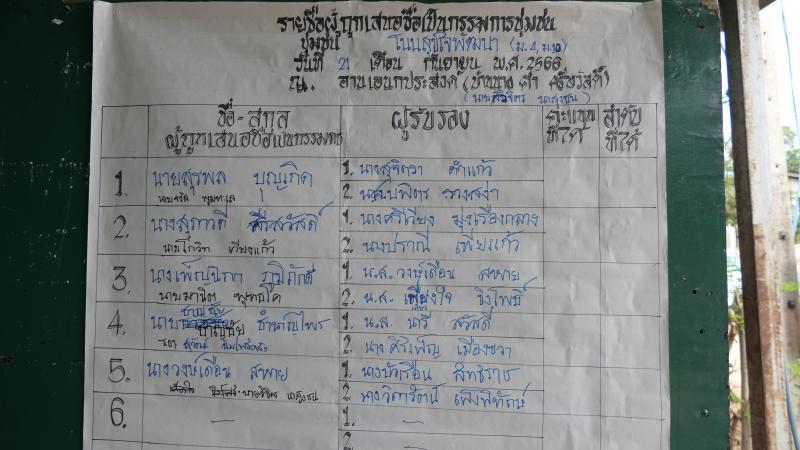 รายชื่อผู้ถูกเสนอชื่อเป็นกรรมการชุมชน
ชุมชน โนนสุขใจพัฒนา (ม.4, ม.10)
วันที่ 21 เดือน กันยายน พ.ศ. 2566
ณ. ลานเอนกประสงค์ (บ้านนาง ศรีสวัสดิ์)
ชื่อ-สกุล
ผู้ถูกเสนอชื่อเป็นกรรมการ
ผู้รับรอง
คะแนนที่ได้
ลำดับที่ได้
1. นายสุรพล บุญเกิด
1. นางสุจิตรา คำแก้ว
2.
2. นางสุภาวดี ศรีสวัสดิ์
นายโกวิท เวียงแก้ว
1. นางศรีเวียง มุ่งเรื่องกลาง
2. นางปราณี เพียแก้ว
3. ภูมิภักดิ์
นายมานิต พุทธโค
1. น.ส. วงษ์เดือน สหาย
2. น.ส. เวียงใจ ชิงโพธิ์
4. นาย ชาญชัย ชำนาญไพร
1. น.ส. นารี สวัสดี
2. นางศิริเพ็ญ เมืองขวา
5. นางวงษ์เดือน สหาย
1. นางบัวเรือน สิทธิราช
2. นางวิภารัตน์ เพ็งพิทักษ์
6. —
1. —
2. —